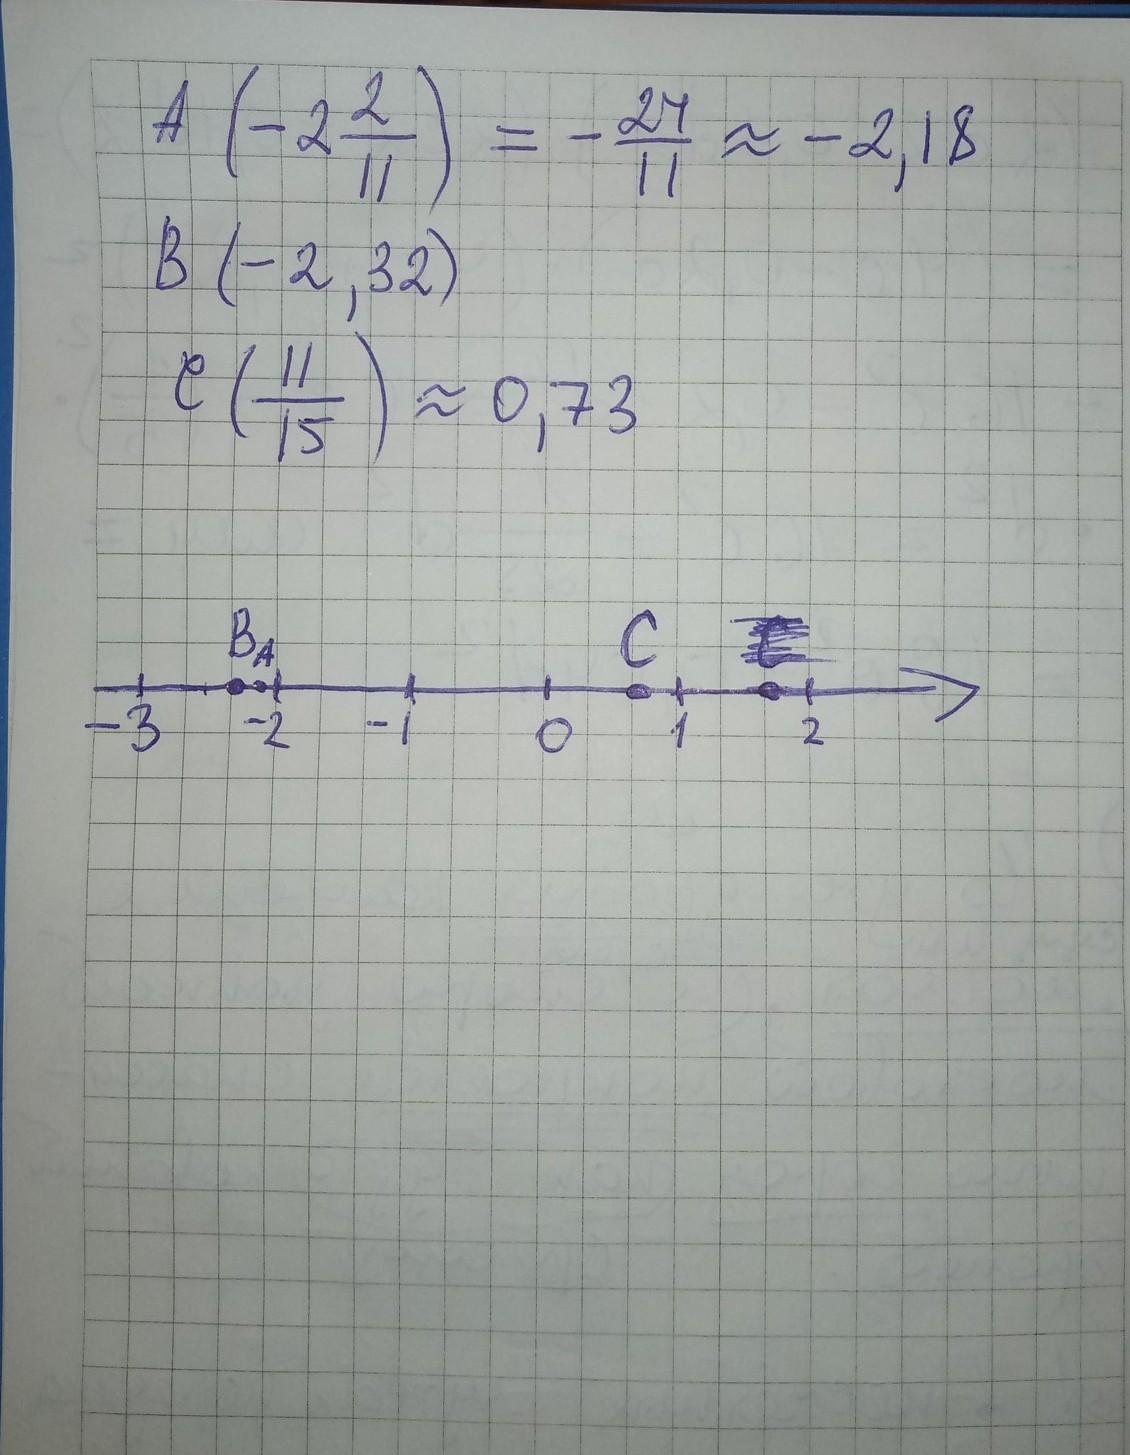 A (-2 2/11) = -24/11 ≈ -2,18
B (-2,32)
C (11/15) ≈ 0,73
B A C
-3 -2 -1 0 1 2